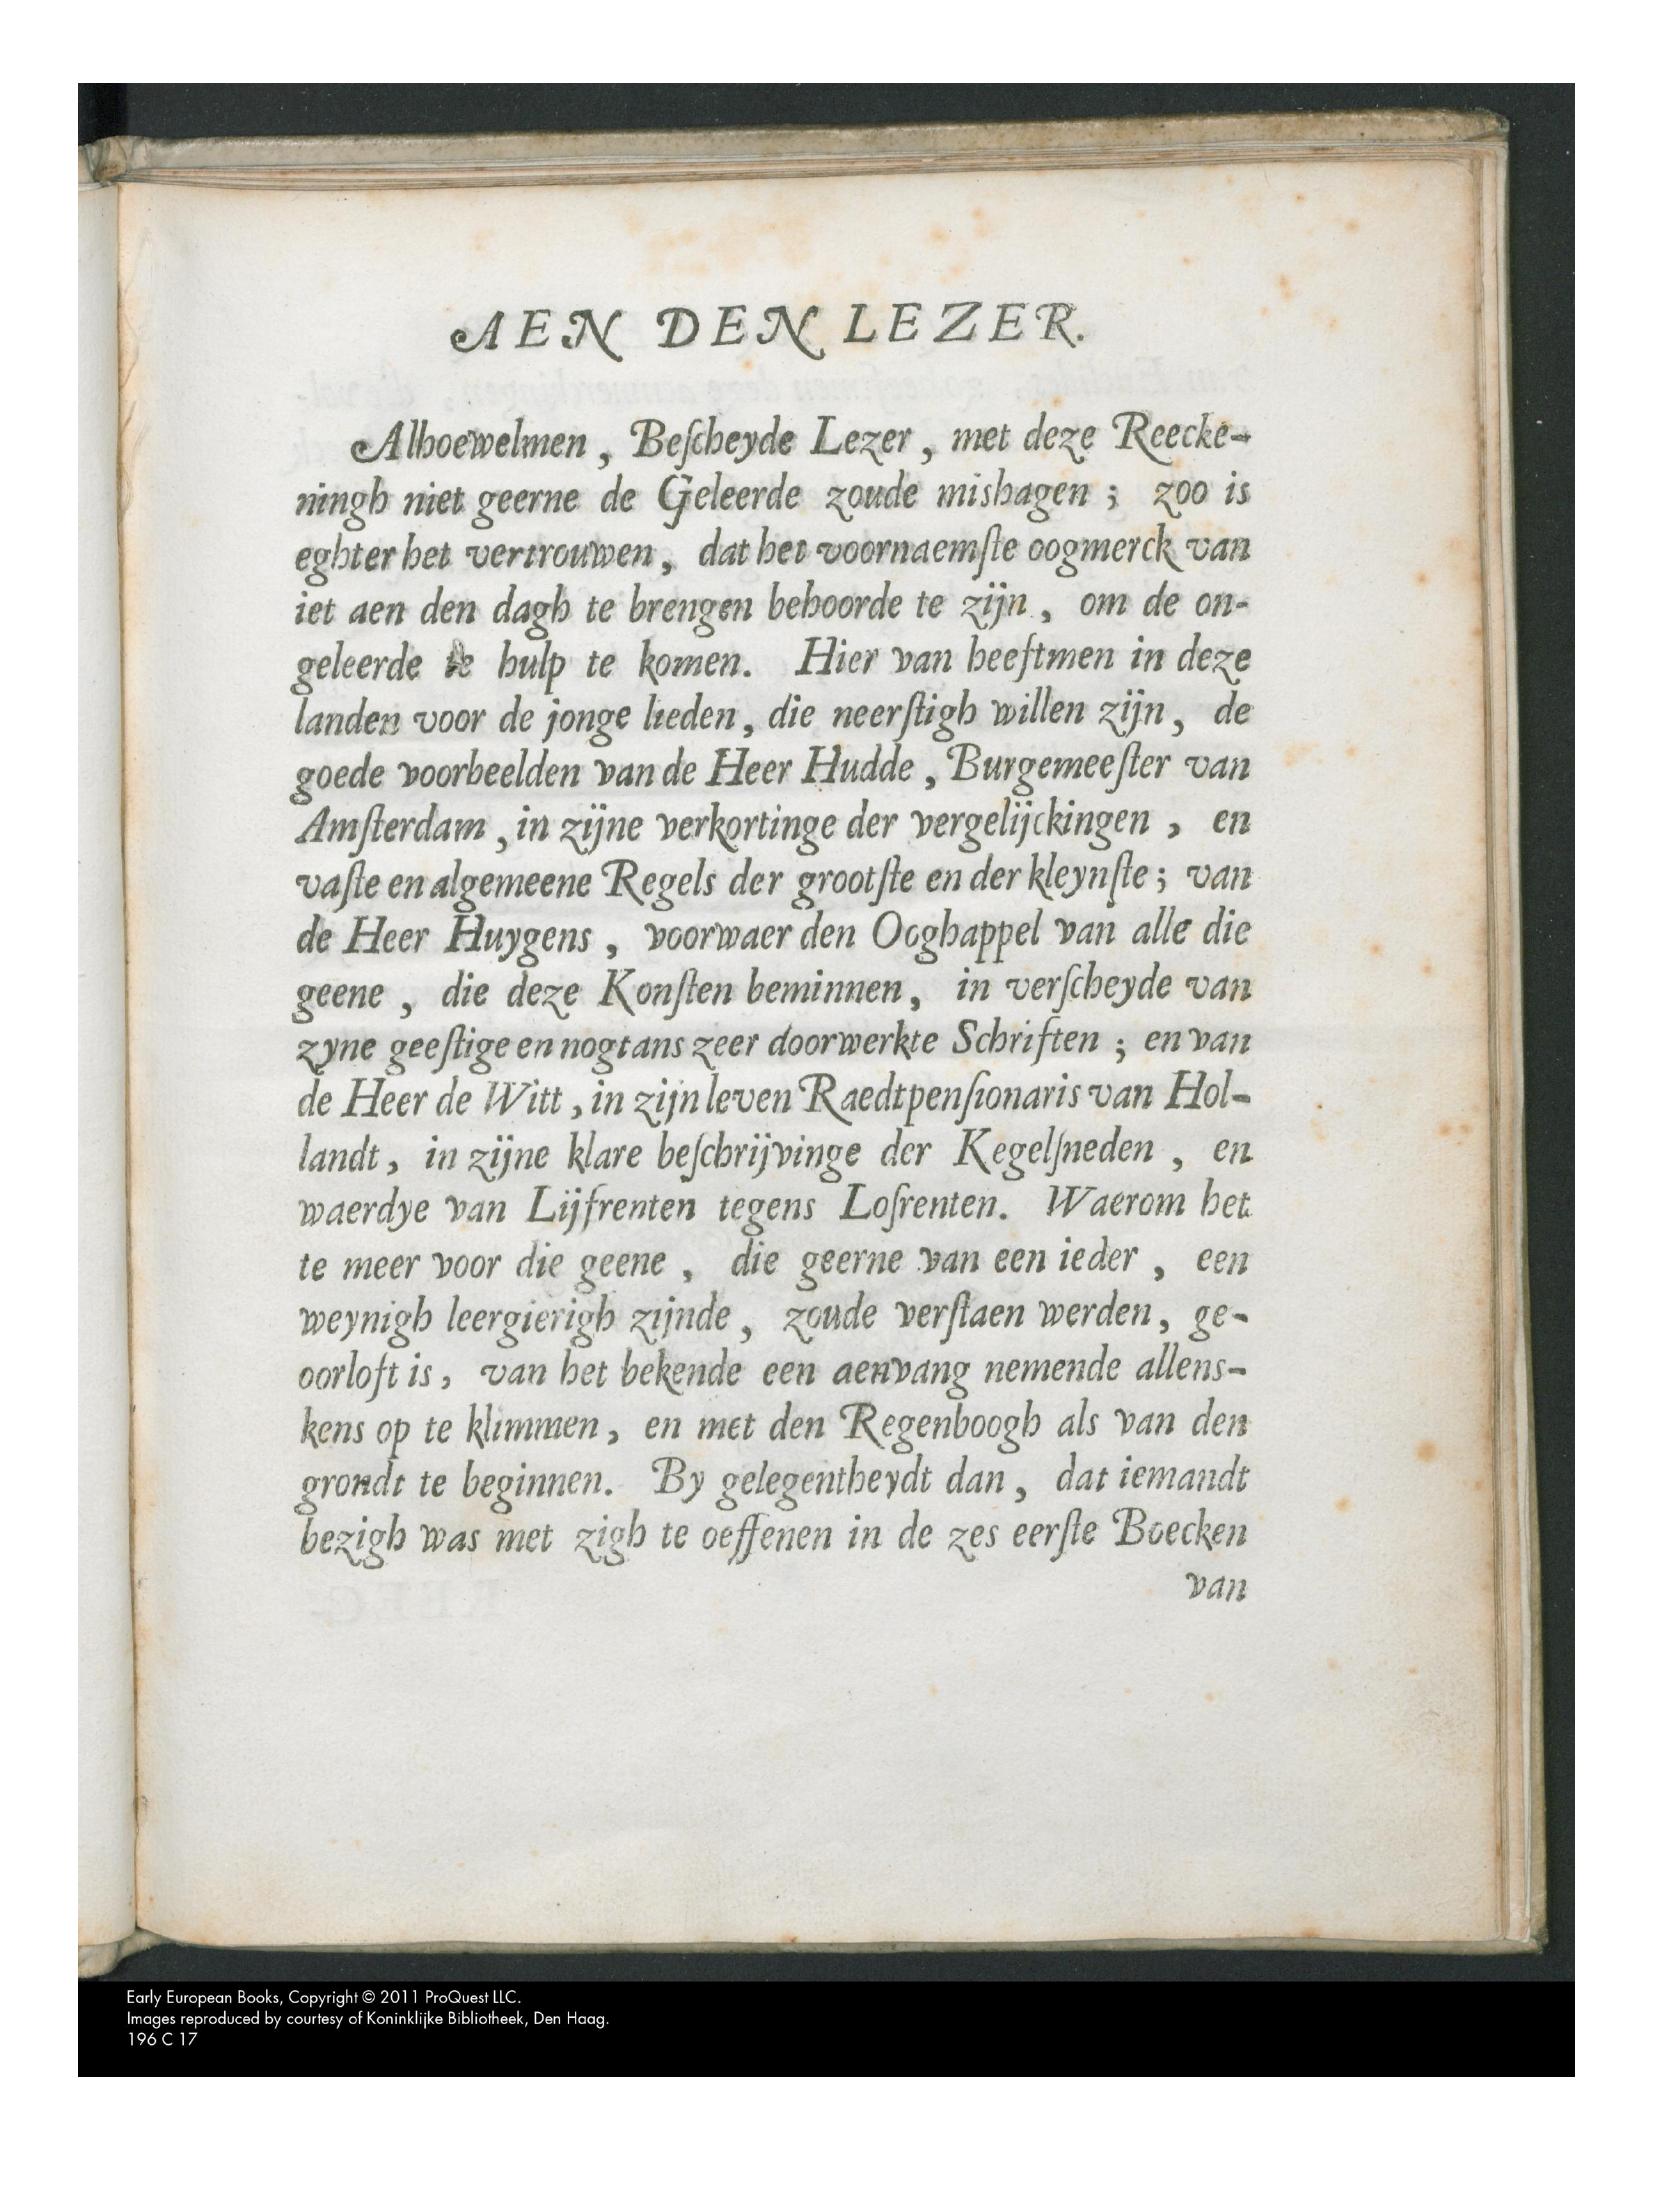 AEN DEN LEZER.
Alhoewelmen, Beſcheyde Lezer, met deze Reecke-
ningh niet geerne de Geleerde zoude mishagen; zoo is
eghter het vertrouwen, dat het voornaemſte oogmerck van
iet aen den dagh te brengen behoorde te zijn, om de on-
geleerde te hulp te komen. Hier van heeftmen in deze
landen voor de jonge lieden, die neerſtigh willen zijn, de
goede voorbeelden van de Heer Hudde, Burgemeeſter van
Amſterdam, in zijne verkortinge der vergelijckingen, en
vaſte en algemeene Regels der grootſte en der kleynſte; van
de Heer Huygens, voorwaer den Ooghappel van alle die
geene, die deze Konſten beminnen, in verſcheyde van
zyne geeſtige en nogtans zeer doorwerkte Schriften; en van
de Heer de Witt, in zijn leven Raedtpenſionaris van Hol-
landt, in zijne klare beſchrijvinge der Kegelſneden, en
waerdye van Lijfrenten tegens Loſrenten. Waerom het
te meer voor die geene, die geerne van een ieder, een
weynigh leergierigh zijnde, zoude verſtaen werden, ge-
oorloft is, van het bekende een aenvang nemende allens-
kens op te klimmen, en met den Regenboogh als van den
grondt te beginnen. By gelegentheydt dan, dat iemandt
bezigh was met zigh te oeffenen in de zes eerſte Boecken
van
Early European Books, Copyright © 2011 ProQuest LLC.
Images reproduced by courtesy of Koninklijke Bibliotheek, Den Haag.
196 C 17